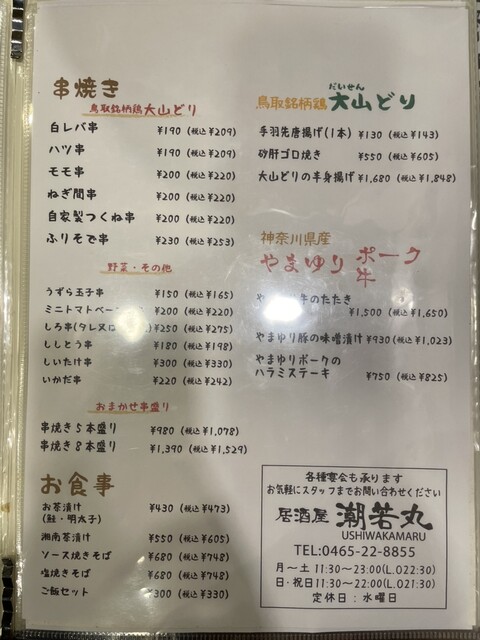 串焼き
鳥取銘柄鶏 大山どり
白レバ串 ¥190 (税込 ¥209)
ハツ串 ¥190 (税込 ¥209)
モモ串 ¥200 (税込 ¥220)
ねぎ間串 ¥200 (税込 ¥220)
自家製つくね串 ¥200 (税込 ¥220)
ふりそで串 ¥230 (税込 ¥253)
野菜・その他
うずら玉子串 ¥150 (税込 ¥165)
ミニトマトベー ¥200 (税込 ¥220)
しろ串(タレ又は ¥250 (税込 ¥275)
ししとう串 ¥180 (税込 ¥198)
しいたけ串 ¥300 (税込 ¥330)
いかだ串 ¥220 (税込 ¥242)
おまかせ串盛り
串焼き5本盛り ¥980 (税込 ¥1,078)
串焼き8本盛り ¥1,390 (税込 ¥1,529)
お食事
お茶漬け ¥430 (税込 ¥473)
(鮭・明太子)
湘南茶漬け ¥550 (税込 ¥605)
ソース焼きそば ¥680 (税込 ¥748)
塩焼きそば ¥680 (税込 ¥748)
ご飯セット ¥300 (税込 ¥330)
だいせん
鳥取銘柄鶏 大山どり
手羽先唐揚げ(1本) ¥130 (税込 ¥143)
砂肝ゴロ焼き ¥550 (税込 ¥605)
大山どりの半身揚げ ¥1,680 (税込 ¥1,848)
神奈川県産
やまゆり ポーク
牛
牛のたたき
¥1,500 (税込 ¥1,650)
やまゆり豚の味噌漬け ¥930 (税込 ¥1,023)
やまゆりポークの
ハラミステーキ ¥750 (税込 ¥825)
各種宴会も承ります
お気軽にスタッフまでお問い合わせください
居酒屋 潮若丸
USHIWAKAMARU
TEL:0465-22-8855
月〜土 11:30〜23:00(L.O22:30)
日・祝日11:30〜22:00(L.O21:30)
定休日:水曜日